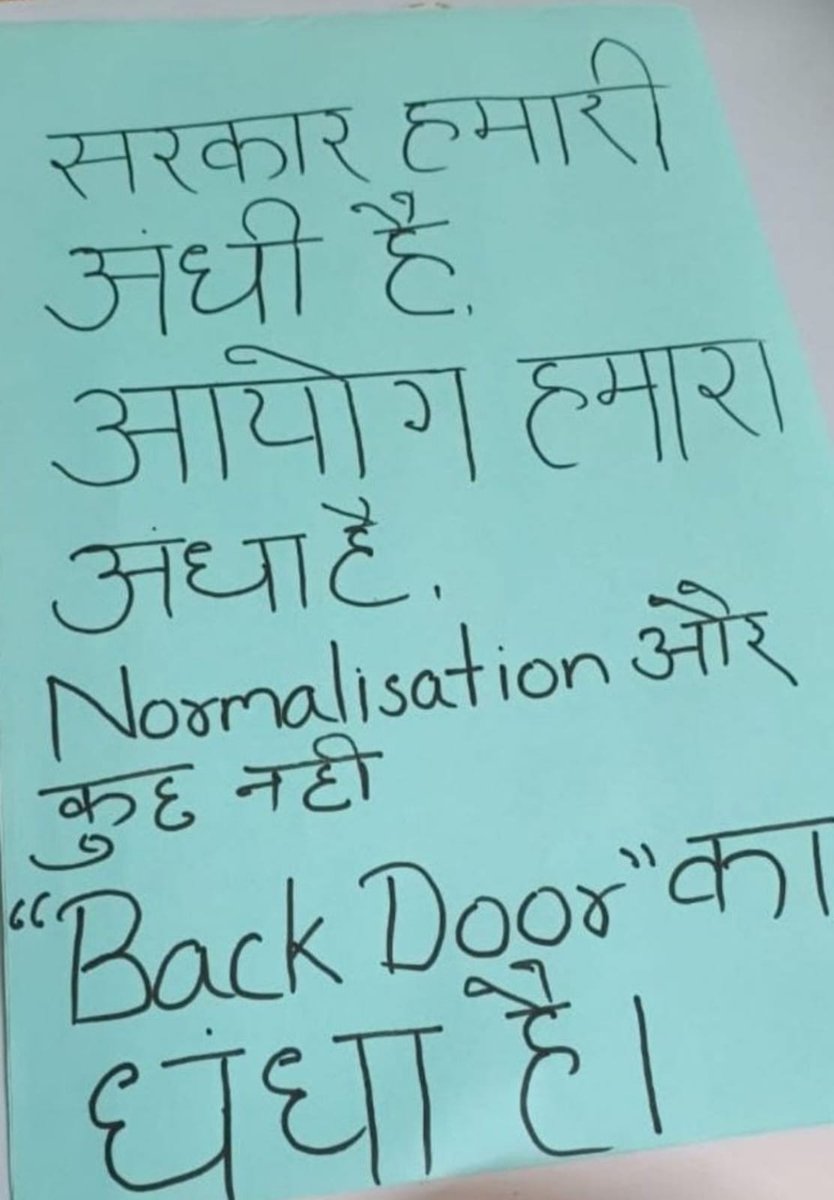 सरकार हमारी
अंधी है.
आयोग हमारा
अंधा है.
Normalisation और
कुछ नही
“Back Door” का
धंधा है।